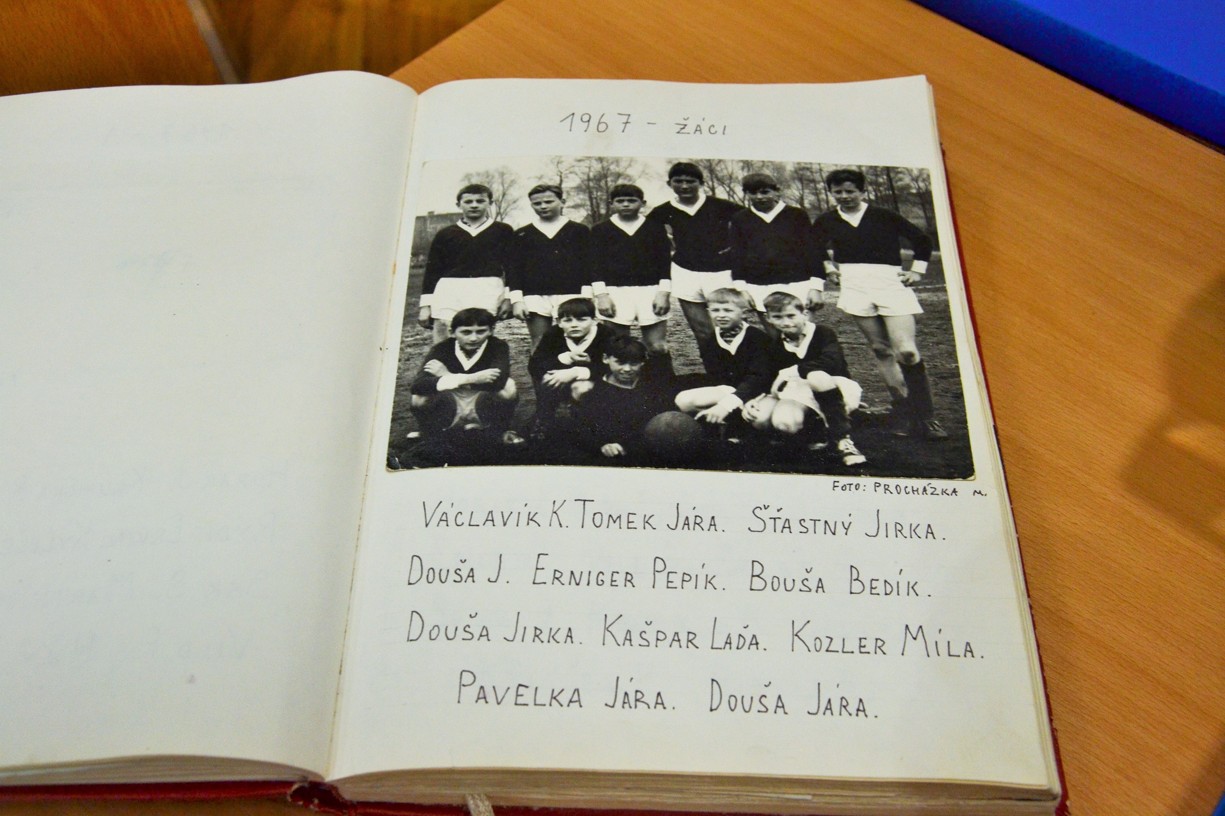 1967 - ŽÁCI
FOTO: PROCHÁZKA M.
VÁCLAVÍK K. TOMEK JÁRA. ŠŤASTNÝ JIRKA.
DOUŠA J. ERNIGER PEPÍK. BOUŠA BEDÍK.
DOUŠA JIRKA. KAŠPAR LAĎA. KOZLER MÍLA.
PAVELKA JÁRA. DOUŠA JÁRA.